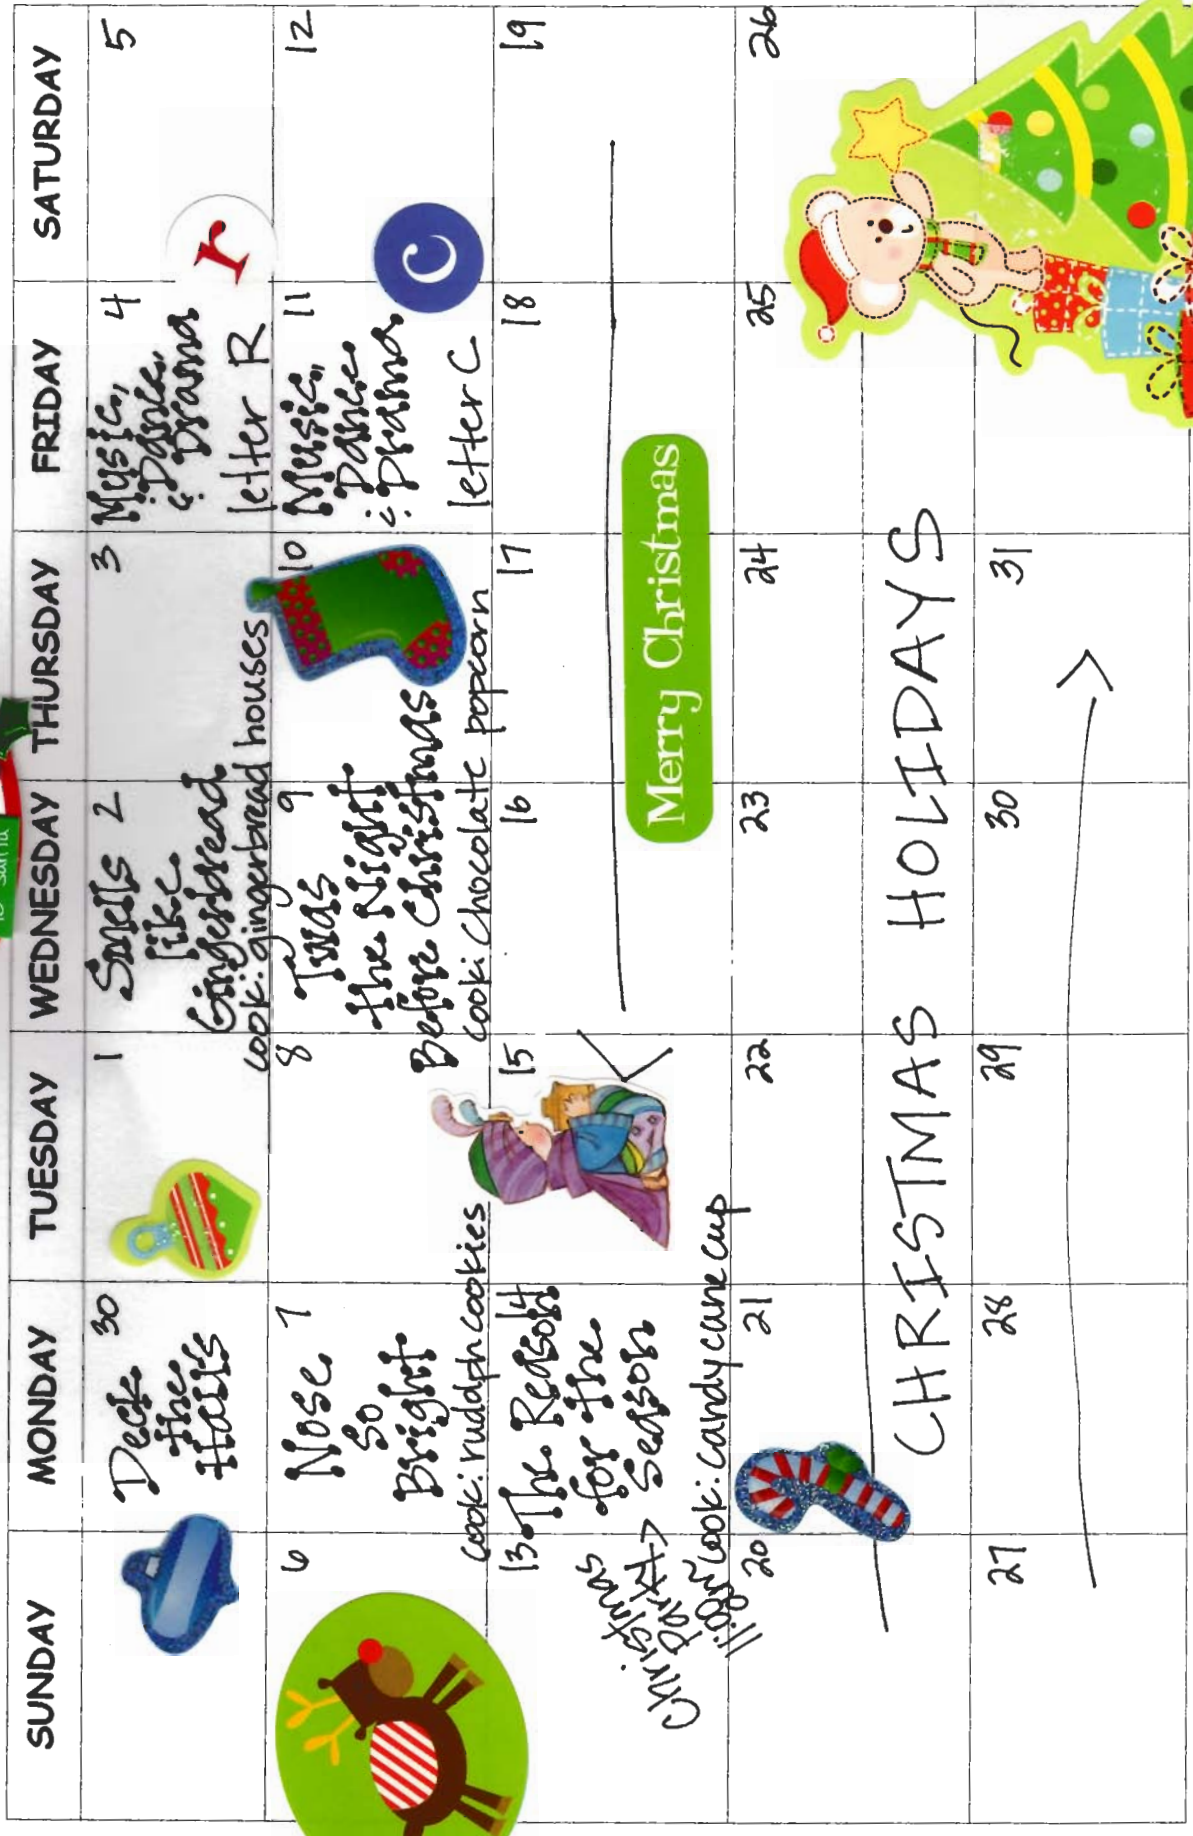 SUNDAY
MONDAY
TUESDAY
WEDNESDAY
THURSDAY
FRIDAY
SATURDAY
30
Deck
the
Halls
1
2
Smells
like
Gingerbread
cook: gingerbread houses
3
4
Music,
Dance,
& Drama
letter R
r
5
6
7
Nose
so
Bright
cook: rudolph cookies
8
9
Twas
the Night
Before Christmas
cook: Chocolate popcorn
10
11
Music,
Dance
& Drama
letter C
c
12
13
Christmas
Party
11:00am
14
The Reason
for the
Season
cook: candy cane cup
15
16
17
18
19
Merry Christmas
20
21
22
23
24
25
26
CHRISTMAS HOLIDAYS
27
28
29
30
31